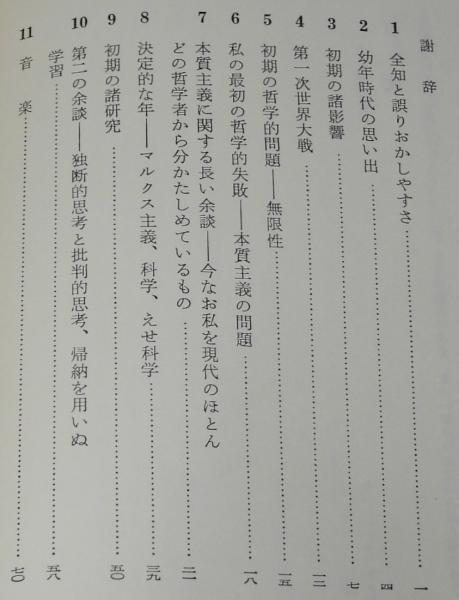 謝辞
1 全知と誤りおかしやすさ…………一
2 幼年時代の思い出…………四
3 初期の諸影響…………七
4 第一次世界大戦…………一二
5 初期の哲学的問題――無限性…………一五
6 私の最初の哲学的失敗――本質主義の問題…………一八
7 本質主義に関する長い余談――今なお私を現代のほとん
どの哲学者から分かたしめているもの…………二一
8 決定的な年――マルクス主義、科学、えせ科学…………三九
9 初期の諸研究…………五〇
10 第二の余談――独断的思考と批判的思考、帰納を用いぬ
学習…………五八
11 音楽…………七〇